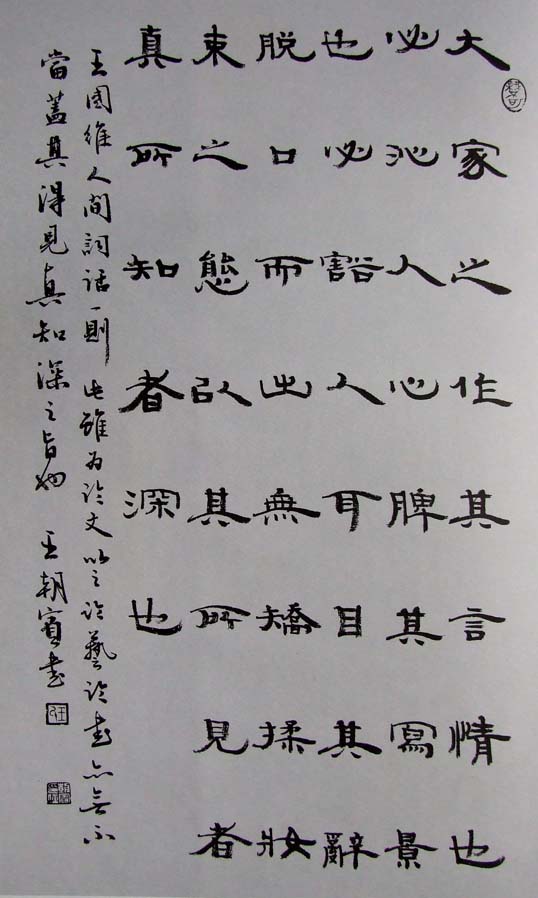 大家之作其言情也
必沁人心脾其寫景
也必豁人耳目其辭
脱口而出無矯揉妝
束之態以其所見者
真所知者深也
王國維人間詞話一則此雖為论文以之论藝论書亦無不
當蓋其得見真知深之旨也 王朝賓書